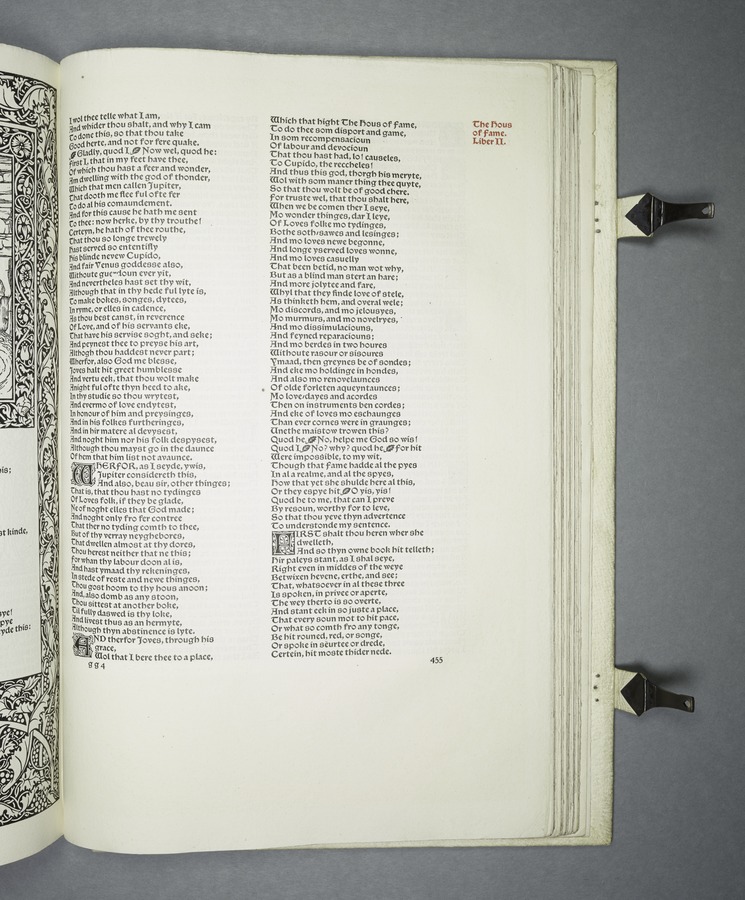 is;
st kinde,
ye!
pye
yde this:
I wol thee telle what I am,
And whider thou shalt, and why I cam
To done this, so that thou take
Good herte, and not for fere quake.
Gladly, quod I. Now wel, quod he:
First I, that in my feet have thee,
Of which thou hast a feer and wonder,
Am dwelling with the god of thonder,
Which that men callen Jupiter,
That dooth me flee ful ofte fer
To do al his comaundement.
And for this cause he hath me sent
To thee: now herke, by thy trouthe!
Certeyn, he hath of thee routhe,
That thou so longe trewely
Hast served so ententifly
His blinde nevew Cupido,
And fair Venus goddesse also,
Withoute guerdoun ever yit,
And nevertheles hast set thy wit,
Although that in thy hede ful lyte is,
To make bokes, songes, dytees,
In ryme, or elles in cadence,
As thou best canst, in reverence
Of Love, and of his servants eke,
That have his servise soght, and seke;
And peynest thee to preyse his art,
Althogh thou haddest never part;
Wherfor, also God me blesse,
Joves halt hit greet humblesse
And vertu eek, that thou wolt make
Anight ful ofte thyn heed to ake,
In thy studie so thou wrytest,
And evermo of love endytest,
In honour of him and preysinges,
And in his folkes furtheringes,
And in hir matere al devysest,
And noght him nor his folk despysest,
Although thou mayst go in the daunce
Of hem that him list not avaunce.
WHERFOR, as I seyde, ywis,
Jupiter considereth this,
And also, beau sir, other thinges;
That is, that thou hast no tydinges
Of Loves folk, if they be glade,
Ne of noght elles that God made;
And noght only fro fer contree
That ther no tyding comth to thee,
But of thy verray neyghebores,
That dwellen almost at thy dores,
Thou herest neither that ne this;
For whan thy labour doon al is,
And hast ymaad thy rekeninges,
In stede of reste and newe thinges,
Thou gost hoom to thy hous anoon;
And, also domb as any stoon,
Thou sittest at another boke,
Til fully daswed is thy loke,
And livest thus as an hermyte,
Although thyn abstinence is lyte.
AND therfor Joves, through his
grace,
Wol that I bere thee to a place,
gg4
Which that hight The Hous of Fame,
To do thee som disport and game,
In som recompensacioun
Of labour and devocioun
That thou hast had, lo! causeles,
To Cupido, the reccheles!
And thus this god, thorgh his meryte,
Wol with som maner thing thee quyte,
So that thou wolt be of good chere.
For truste wel, that thou shalt here,
When we be comen ther I seye,
Mo wonder thinges, dar I leye,
Of Loves folke mo tydinges,
Bothe soth-sawes and lesinges;
And mo loves newe begonne,
And longe yserved loves wonne,
And mo loves casuelly
That been betid, no man wot why,
But as a blind man stert an hare;
And more jolytee and fare,
Whyl that they finde love of stele,
As thinketh hem, and overal wele;
Mo discords, and mo jelousyes,
Mo murmurs, and mo novelryes,
And mo dissimulaciouns,
And feyned reparaciouns;
And mo berdes in two houres
Withoute rasour or sisoures
Ymaad, then greynes be of sondes;
And eke mo holdinge in hondes,
And also mo renovelaunces
Of olde forleten aqueyntaunces;
Mo love-dayes and acordes
Then on instruments ben cordes;
And eke of loves mo eschaunges
Than ever cornes were in graunges;
Unethe maistow trowen this?
Quod he. No, helpe me God so wis!
Quod I. No? why? quod he. For hit
Were impossible, to my wit,
Though that Fame hadde al the pyes
In al a realme, and al the spyes,
How that yet she shulde here al this,
Or they espye hit. O yis, yis!
Quod he to me, that can I preve
By resoun, worthy for to leve,
So that thou yeve thyn advertence
To understonde my sentence.
FIRST shalt thou heren wher she
dwelleth,
And so thyn owne book hit telleth;
Hir paleys stant, as I shal seye,
Right even in middes of the weye
Betwixen hevene, erthe, and see;
That, whatsoever in al these three
Is spoken, in privee or aperte,
The wey therto is so overte,
And stant eek in so juste a place,
That every soun mot to hit pace,
Or what so comth fro any tonge,
Be hit rouned, red, or songe,
Or spoke in seurtee or drede,
Certein, hit moste thider nede.
455
The Hous
of Fame.
Liber II.